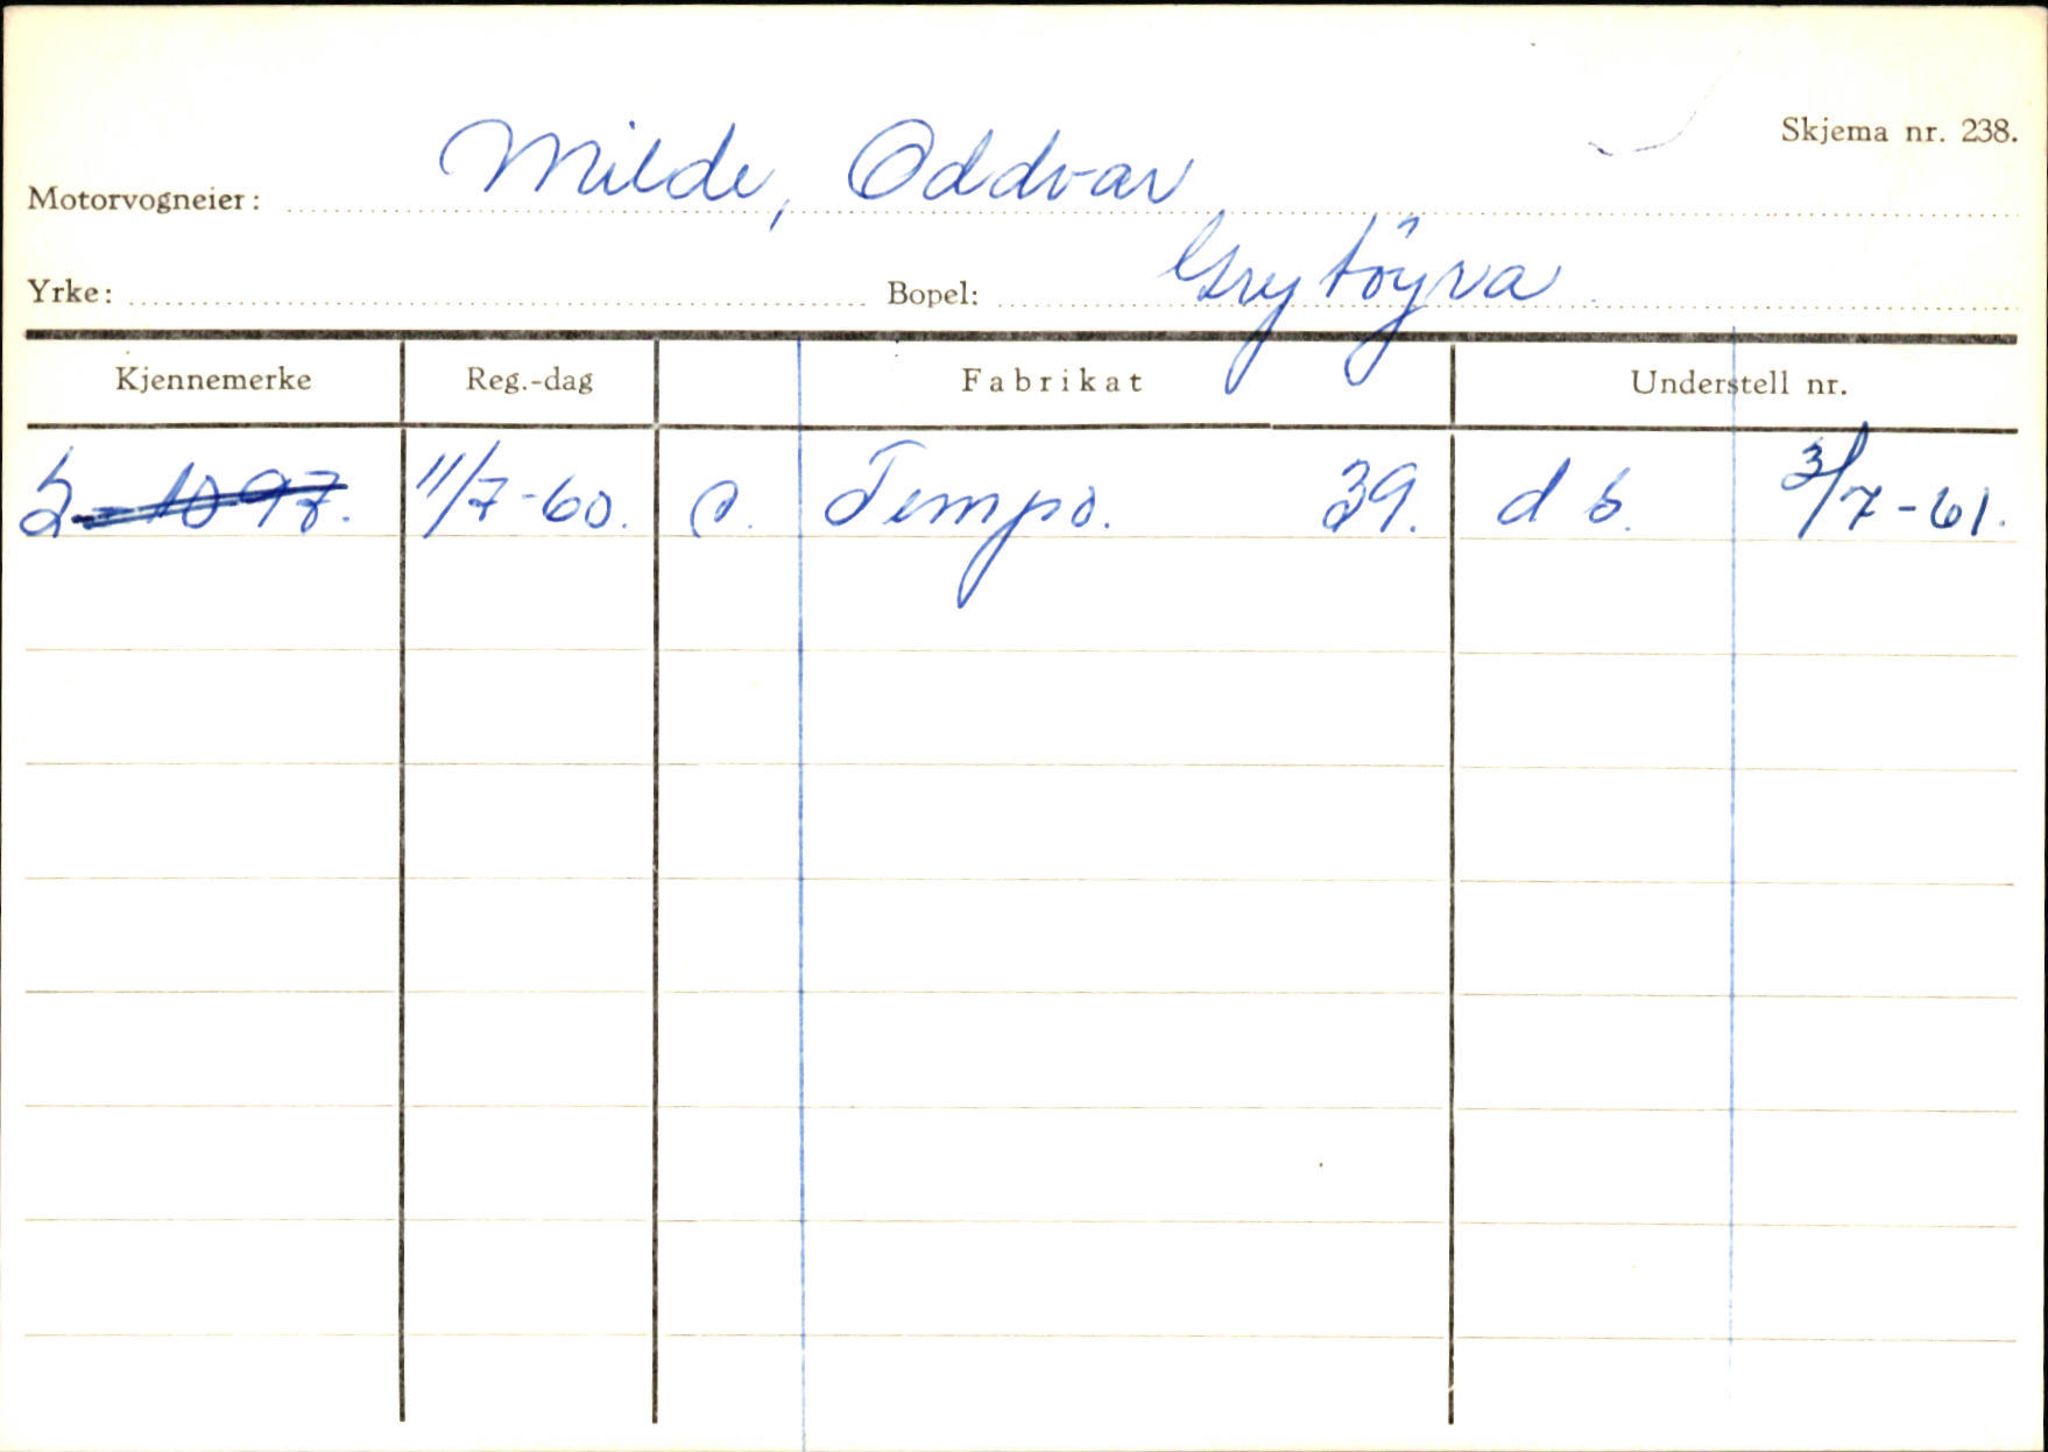 Skjema nr. 238.
Motorvogneier: Milde, Oddvar
Yrke: Bopel: Grytöyra
Kjennemerke Reg.-dag Fabrikat Understell nr.
S-1097. 11/7-60. Tempo. 39. d s. 3/7-61.